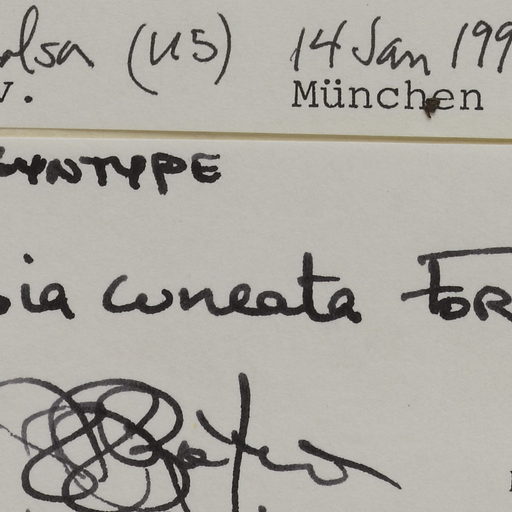 (US) 14 Jan 199
v. München
SYNTYPE
ia cuneata FOR